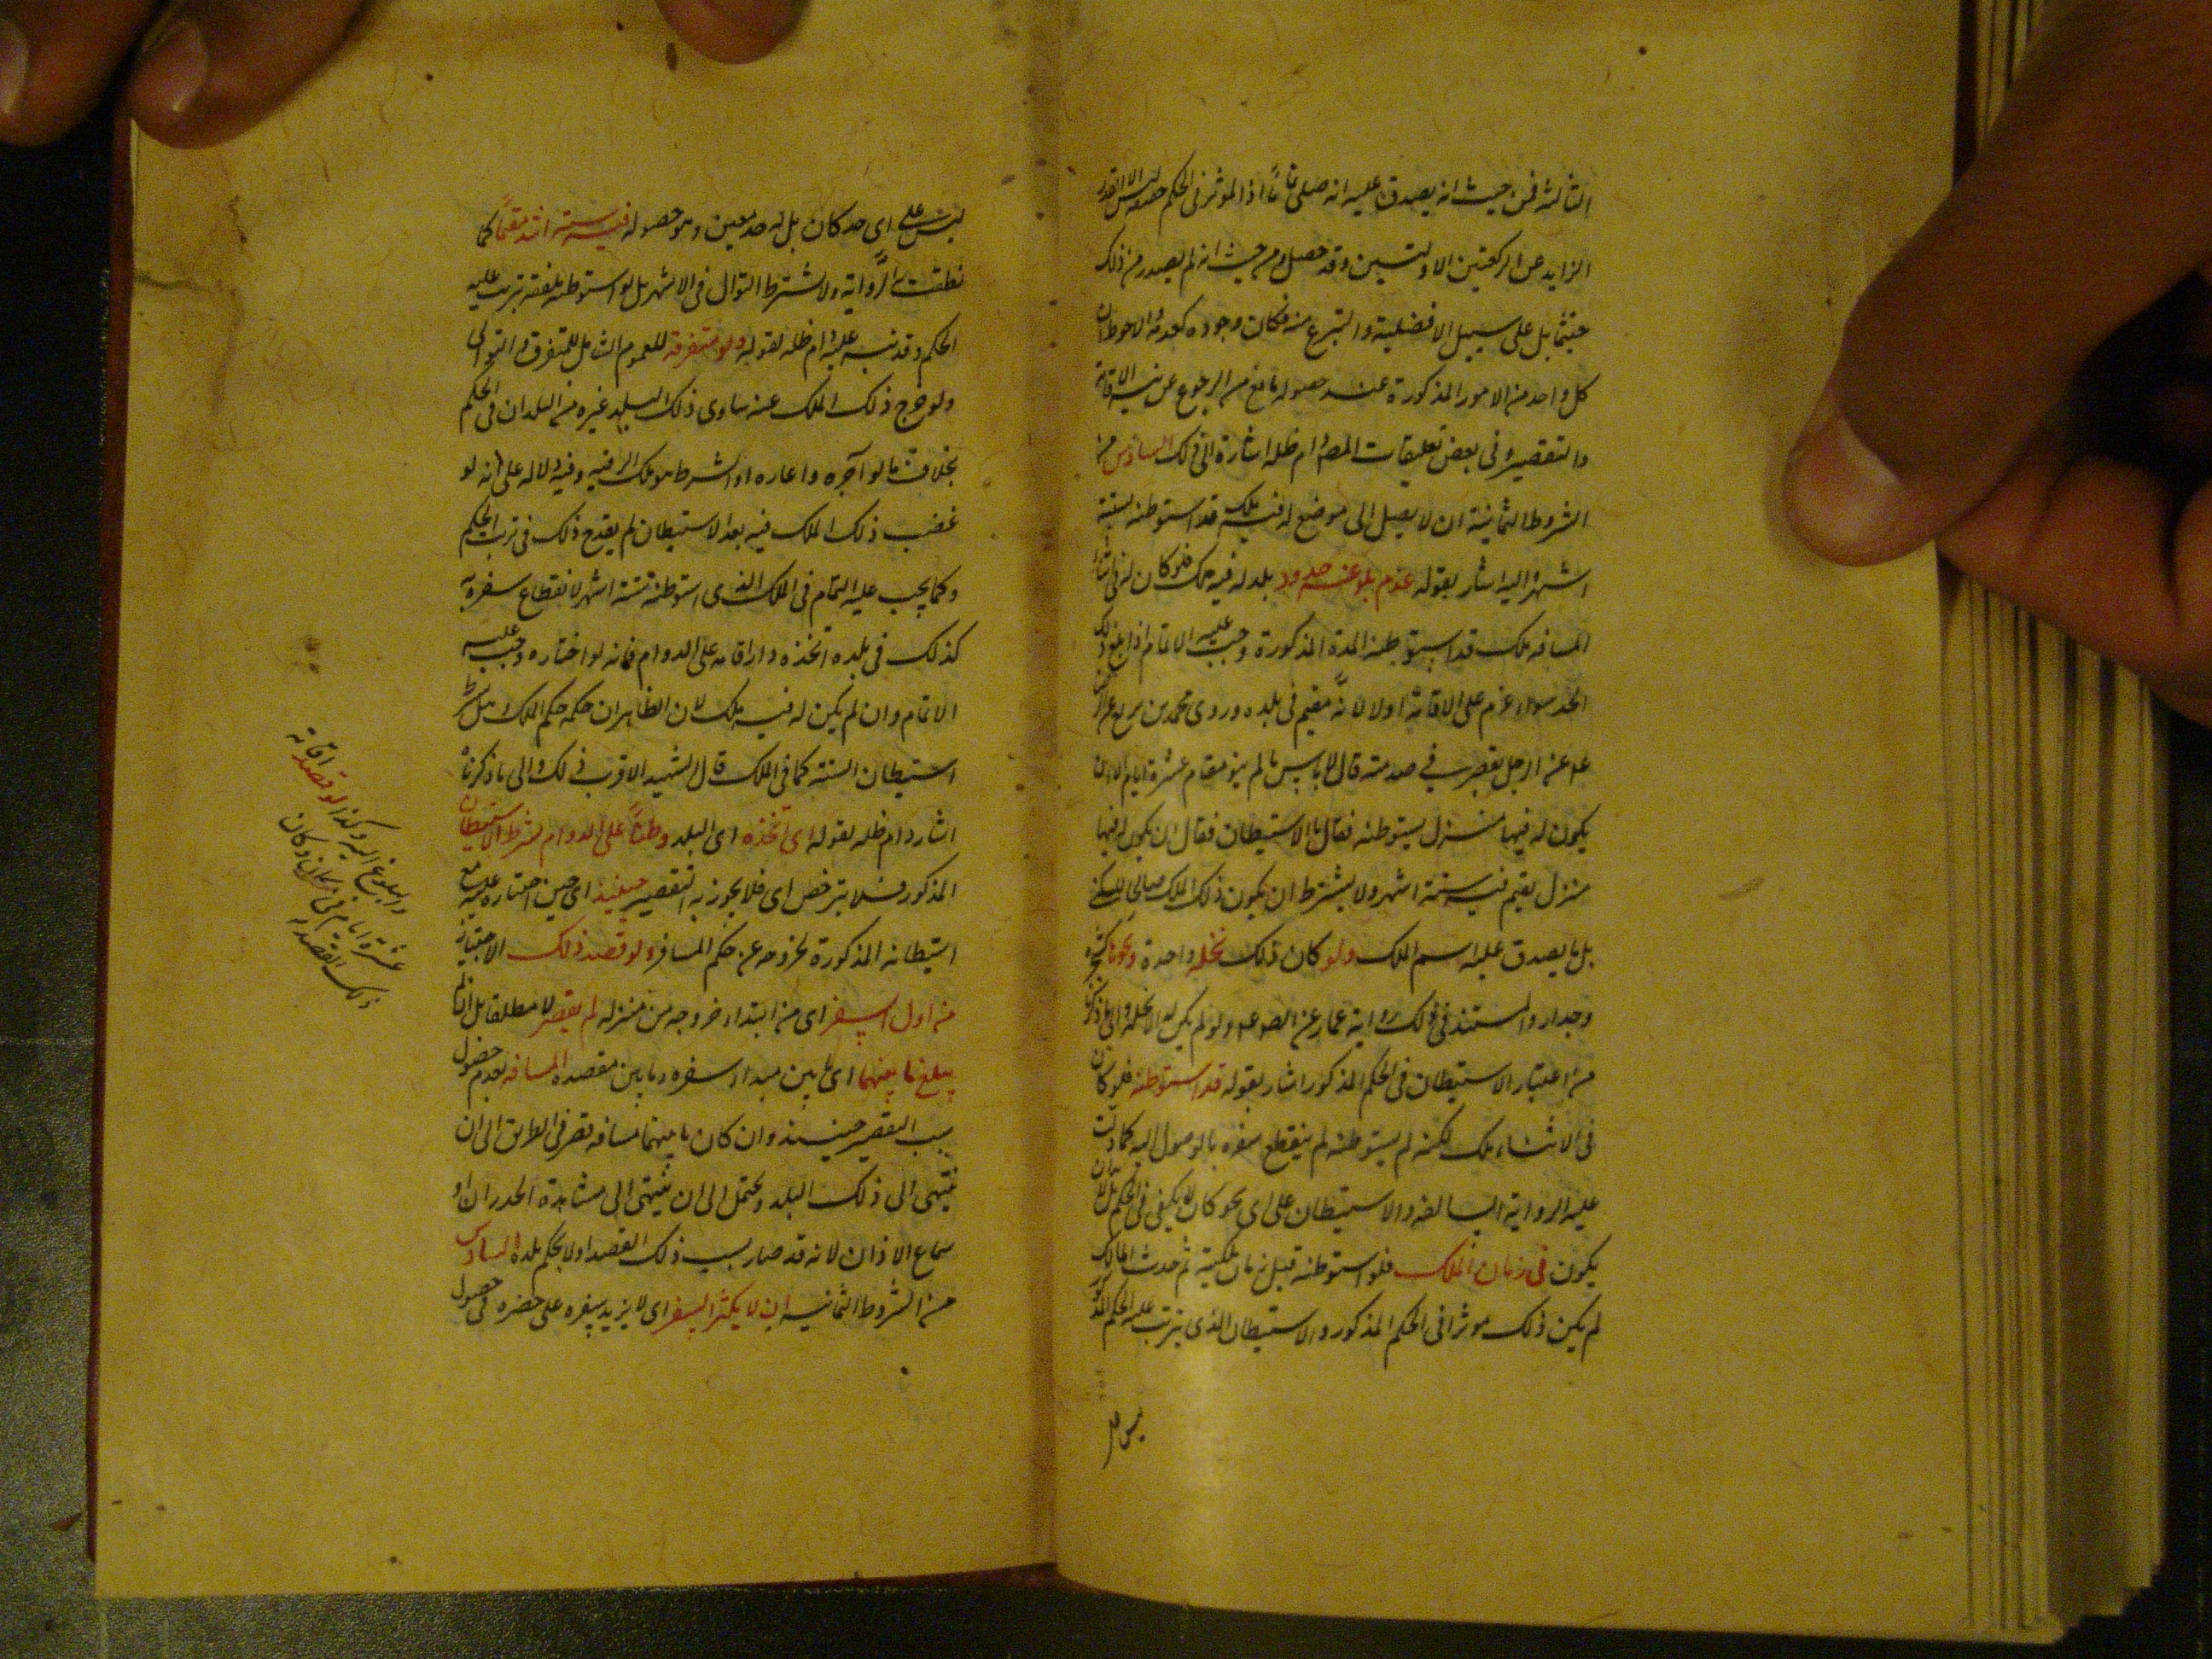 الثالثة فمن حيث انه يصدق عليه انه صلى تماماً اذ المؤثر فى الحكم حصول
الزايد عن الركعتين الاوليين وقد حصل ومن حيث انه لم يصدر من ذلك
حتما بل على سبيل الافضلية والتبرع منه فكان وجوده كعدمه والاحوط ان
كل واحد من الامور المذكورة عند حصوله مانع من الرجوع عن نية الاقامة
والتقصير وفى بعض تعليقات المص دام ظله اشارة الى ذلك السادس من
الشروط الثمانية ان لا يصل الى موضع له فيه ملك قد استوطنه ستة
اشهر واليه اشار بقوله عدم بلوغه حدود بلد له فيه ملك فلو كان له فى اثناء
المسافه ملك قد استوطنه المدة المذكورة وجب عليه الاتمام اذا بلغ ذلك
الحد سواء عزم على الاقامة اولا لانه مقيم فى بلده وروى محمد بن بزيع عن الرضا
عم عن الرجل يقصر فى ضيعته قال لا باس ما لم ينو مقام عشرة ايام الا ان
يكون له فيها منزل يستوطنه فقال ما الاستيطان فقال ان يكون له فيها
منزل يقيم فيه ستة اشهر ولا يشترط ان يكون ذلك الملك صالحا للسكنى
بل ما يصدق عليه اسم الملك ولو كان ذلك نخله واحدة ونحوها كشجر
وجدار والمستند فى ذلك رواية عمار عن الص عم ولو لم يكن له الا نخلة والى ما ذكرنا
من اعتبار الاستيطان فى الحكم المذكور اشار بقوله قد استوطنه فلو كان
فى الاثناء ملك لكنه لم يستوطنه لم ينقطع سفره بالوصول اليه كما دلت
عليه الرواية السالفه والاستيطان على اى نحو كان لا يكفى فى الحكم بل لا بد ان
يكون فى زمان الملك فلو استوطنه قبل زمان ملكيته ثم حدث المالك
لم يكن ذلك موثرا فى الحكم المذكور والاستيطان الذى يترتب عليه الحكم المذكور
ليس على
ليس على اى حد كان بل له حد معين وهو حصوله فيه ستة اشهر مقيماً كما
نطقت به الرواية ولا يشترط التوالى فى الاشهر بل لو استوطنه ملفقة ترتب عليه
الحكم وقد نبه عليه دام ظله بقوله ولو متفرقة للعموم الشامل للمتفرق والمتوالى
ولو خرج ذلك الملك عنه ساوى ذلك البلد غيره من البلدان فى الحكم
بخلاف ما لو آجره واعاره اذ الشرط هو ملك الرقبه وفيه دلاله على انه لو
غصب ذلك الملك فيه بعد الاستيطان لم يقدح ذلك فى ترتب الحكم
وكما يجب عليه التمام فى الملك الذى استوطنه ستة اشهر لانقطاع سفره به
كذلك فى بلده اتخذه دار اقامه على الدوام فانه لو اختاره وجب عليه
الاتمام وان لم يكن له فيه ملك لان الظاهر ان حكمه حكم الملك وهل يشترط
استيطان الستة كما فى الملك قال الشهيد الاقرب ذلك والى ما ذكرناه
اشار دام ظله بقوله اى اتخذه اى البلد وطناً على الدوام بشرط الاستيطان
المذكور فلا يترخص اى فلا يجوز به التقصير حينئذ اى حين اجتيازه عليه مع
استيطانه المذكورة لخروجه عن حكم المسافر ولو قصد ذلك الاجتياز
من اول السفر اى من ابتداء خروجه من منزله لم يقصر لا مطلقا بل ان لم
يبلغ ما بينهما اى ما بين مبداء سفره وما بين مقصده المسافه لعدم حصول
سبب التقصير حينئذ وان كان ما بينهما مسافه قصر فى الطريق الى ان
ينتهى الى ذلك البلد ويحتمل الى ان ينتهى الى مشاهدة الجدران او
سماع الاذان لانه قد صار بسبب ذلك القصد اولا بحكم بلده السادس
من الشروط الثمانيه ان لا يكثر السفر اى لا يزيد سفره على حضره فى حصول
والبلوغ اليه وكذا لو قصد اقامة
عشرة ايام فى مكان وكان
ذلك القصد